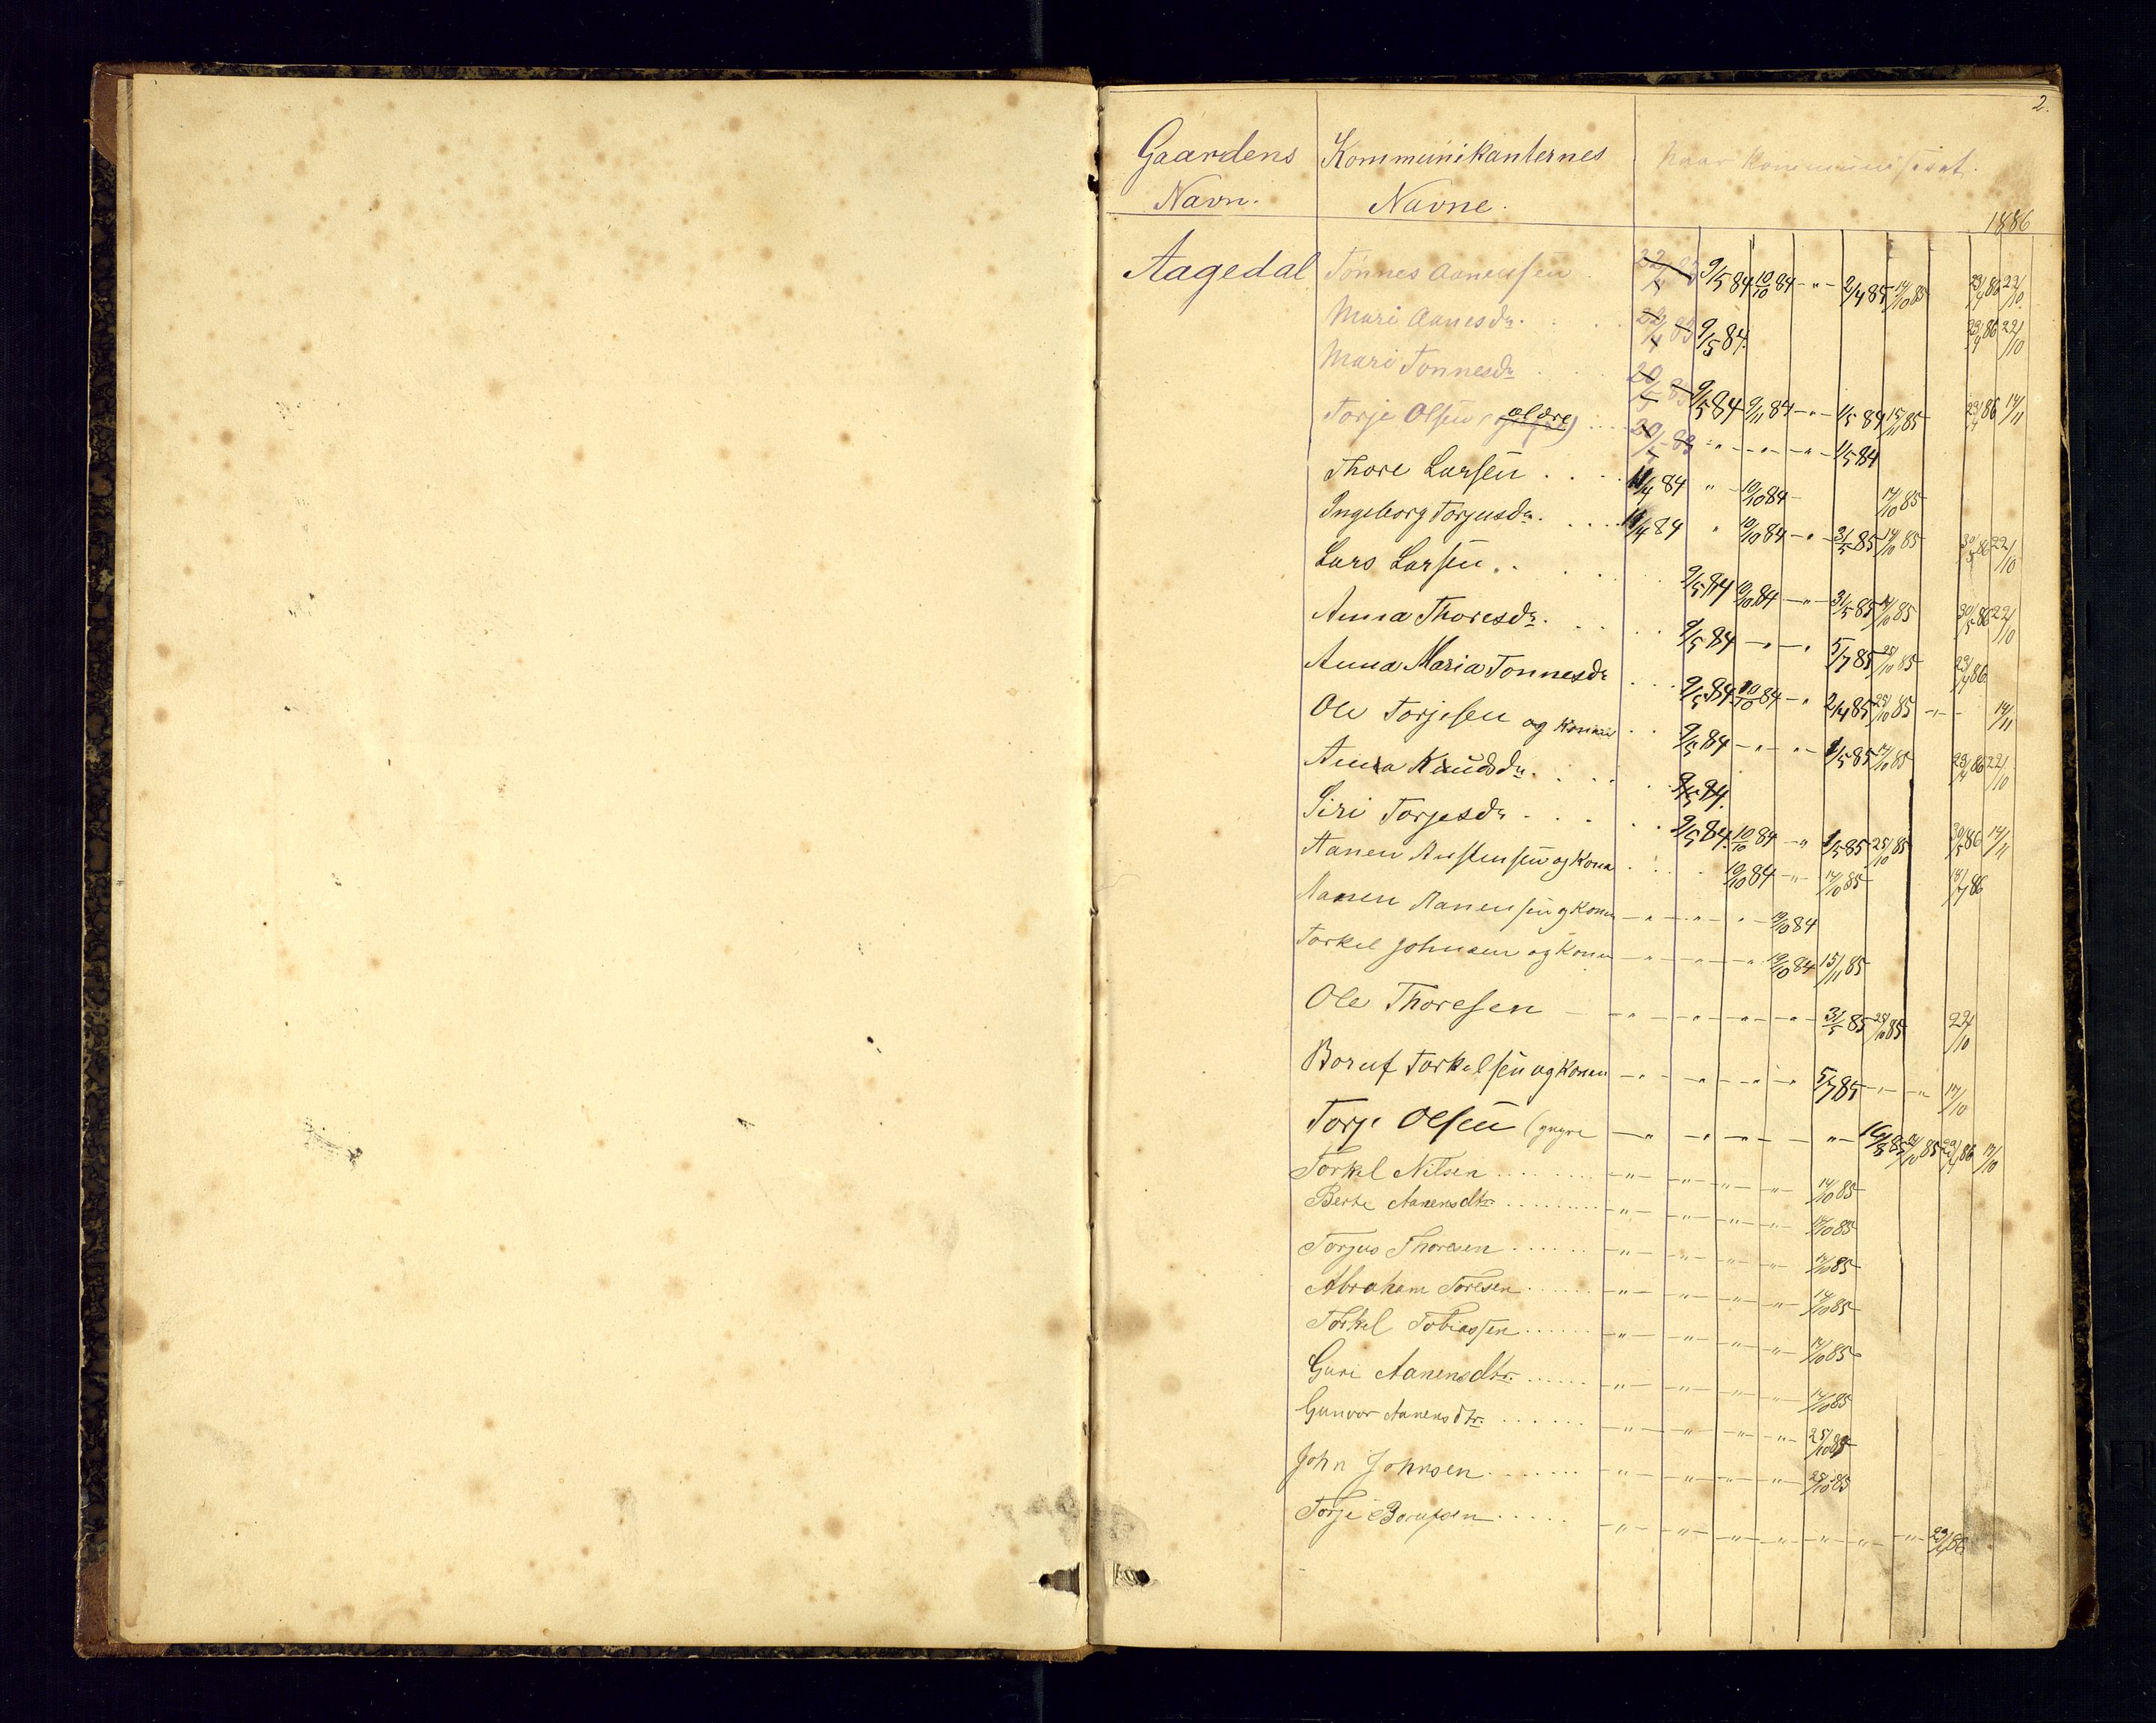 2.
Gaardens Kommunikanternes Naar Kommunisirat.
Navn. Navne.
1886
Aagedal Tönnes Aanensen 22/4 83 9/5 84 10/10 84 - " - 2/4 85 14/10 85 29/4 86 22/10
Mari Aanesdr. 22/4 83 9/5 84. 29/4 86 22/10
Mari Tonnesdr 20/5 83 9/5 84 9/11 84 - " - 1/5 84 15/11 85 29/4 86 14/11
Torje Olsen (ældre) 20/5 83 " - " - " - 1/5 84
Thore Larsen 11/4 84 " 10/10 84 - 14/10 85
Ingeborg Torjusdr. 11/4 84 " 10/10 84 - " - 31/5 85 14/10 85 30/5 86 22/10
Lars Larsen 9/5 84 10/10 84 - " - 31/5 85 14/10 85 30/5 86 22/10
Anna Thoresdr. 9/5 84 - " - " 5/7 85 25/10 85 29/4 86
Anna Maria Tonnesdr 9/5 84 10/10 84 - " 2/4 85 25/10 85 - " - 14/11
Ole Torjesen og Konen 9/5 84 - " - " - 1/5 85 14/10 85 29/4 86 22/10
Anna Knudsdr. 9/5 84.
Siri Torjesdr 9/5 84. 10/10 84 - " 1/5 85 25/10 85 30/5 86 14/11
Aanen Austensen og Kona 10/10 84 - " - 14/10 85 18/7 86
Aanen Aanensen og Konen - " - " - " - 19/10 84
Torkel Johnsen og Konen - " - " - " 19/10 84 15/11 85
Ole Thoresen - " - " - " - " - 31/5 85 25/10 85 22/10
Boruf Torkelsen og Konen - " - " - " - " 5/7 85 - " - " 17/10
Torje Olsen (yngre - " - " - " - " - 16/8 85 14/10 85 29/4 86 17/10
Torkel Nilsen - " - " - " - " - 14/10 85
Berte Aanensdtr. - " - " - " - " - 14/10 85
Torjus Thoresen - " - " - " - " - 14/10 85
Abraham Toresen - " - " - " - " - 14/10 85
Torkel Tobiassen - " - " - " - " - 14/10 85
Guri Aanensdtr. - " - " - " - " - 14/10 85
Gunvor Aanensdtr. - " - " - " - " - 25/10 85
John Johnsen - " - " - " - " - 25/10 85
Torje Borufsen - " - " - " - " - " - " - " - 29/4 86